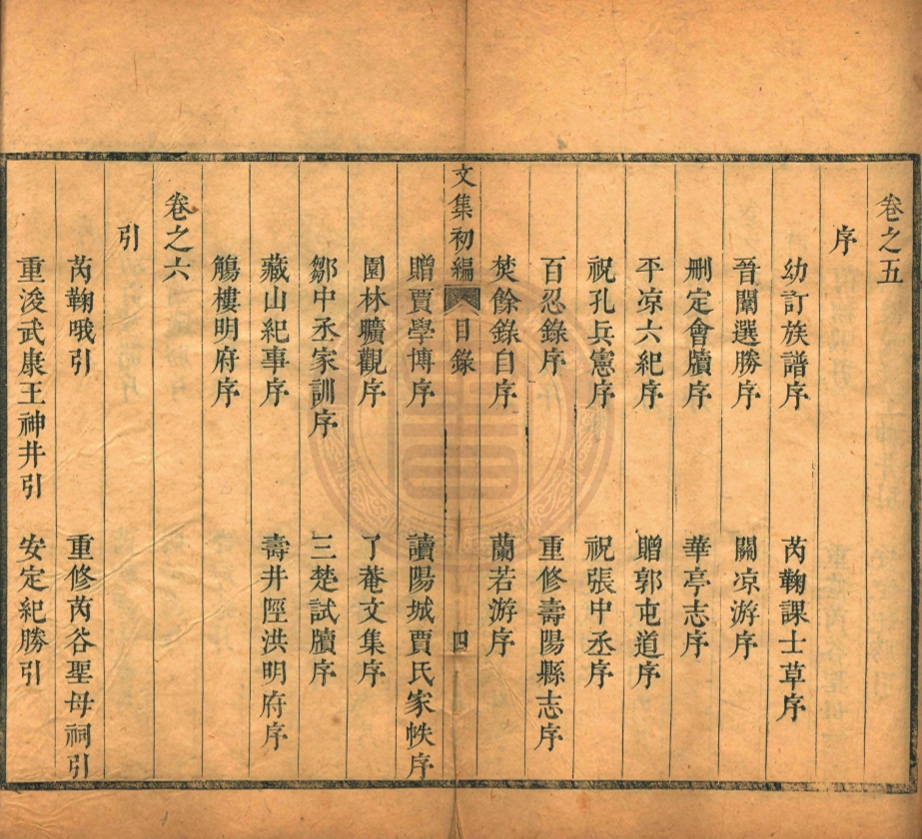 卷之五
序
幼訂族譜序 芮鞠課士草序
晉闈選勝序 關凉游序
刪定會牘序 華亭志序
平凉六紀序 贈郭屯道序
祝孔兵憲序 祝張中丞序
百忍錄序 重修壽陽縣志序
焚餘錄自序 蘭若游序
文集初編 目錄 四
贈賈學博序 讀陽城賈氏家帙序
園林曠觀序 了菴文集序
鄒中丞家訓序 三楚試牘序
藏山紀事序 壽井陘洪明府序
觴樓明府序
卷之六
引
芮鞠哦引 重修芮谷聖母祠引
重浚武康王神井引 安定紀勝引